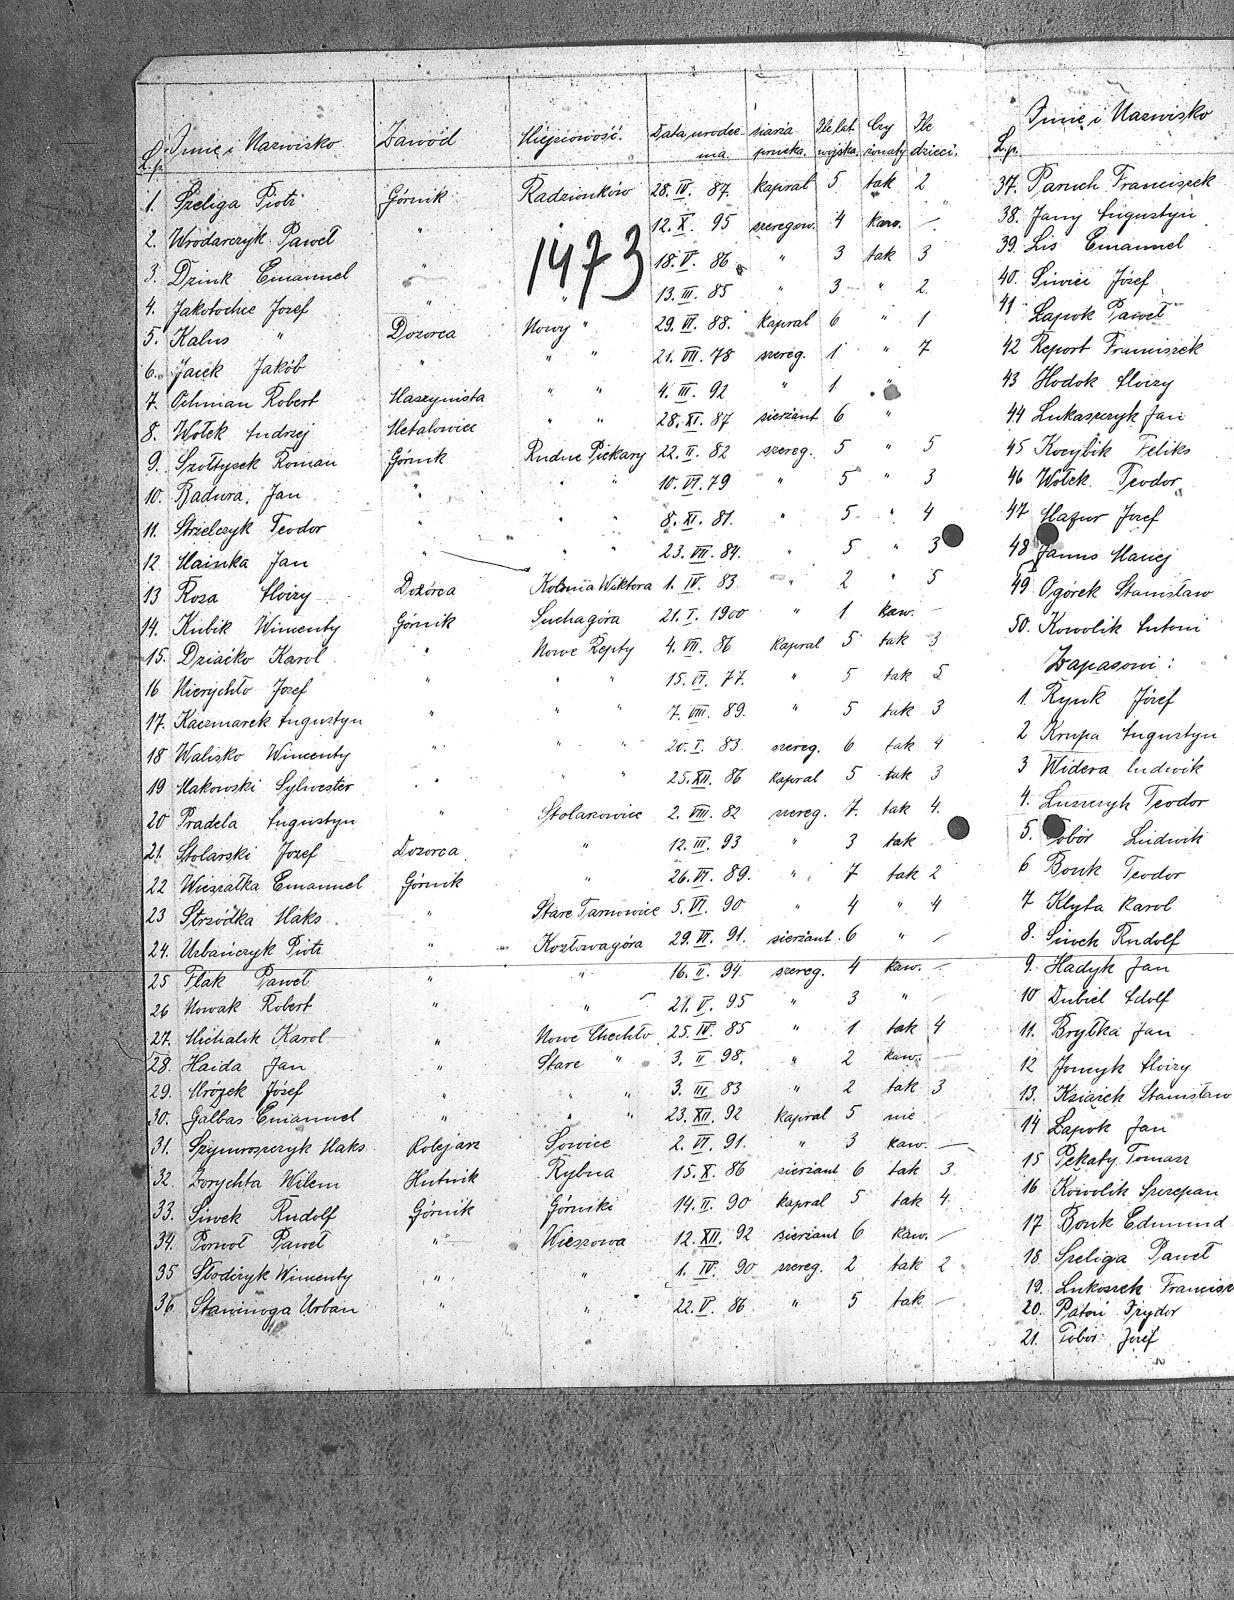 L.p. Imię i Nazwisko Zawód Miejscowość Data urodze- Ile lat Czy Ile
nia. wojska żonaty dzieci.
1. Szeliga Piotr Górnik Radzionków 28.IV. 87. kapral 5 tak 2
2. Włodarczyk Paweł " 12.X. 95 szeregow. 4 kaw. -
1473
3. Dzink Emanuel " 18.V. 86 " 3 tak 3
4. Józef " 13.III. 85 " 3 " 2.
5. Kalus " Dozorca Nowy " 29.VI. 88. kapral 6 " 1
6. Jacek Jakób " " " 21.VII. 78 szereg. 1 " 7
7. Ochman Robert Maszynista " " 4.III. 92 " 1 "
8. Wołek Andrzej Metalowiec " " 28.XI. 87 sierżant 6 "
9. Szołtysek Roman Górnik Rudne Piekary 22.II. 82 szereg. 5 " 5
10. Badura Jan " " " 10.VI. 79 " 5 " 3
11. Strzelczyk Teodor " " " 8.XI. 81. " 5 " 4
12 Mainka Jan " " " 23.VII. 84. " 5 " 3
13 Roza Alojzy Dozórca Kolonia Wiktora 1.IV. 83. " 2 " 5
14. Kubik Wincenty Górnik Suchagóra 21.I. 1900 " 1 kaw. -
15. Dziaćko Karol " Nowe Repty 4.VII. 86 kapral 5 tak 3
16 Nierychło Józef " " " 15.VI. 77. " 5 tak 5
17. Kaczmarek Augustyn " " " 7.VIII. 89. " 5 tak 3
18 Walisko Wincenty " " " 20.I. 83. szereg. 6 tak 4
19 Makowski Sylwester " " " 25.XII. 86 kapral 5 tak 3
20 Pradela Augustyn Stolarzowice 2.VIII. 82 szereg. 7. tak 4.
21. Stolarski Józef Dozorca " 12.III. 93 " 3 tak
22 Emanuel Górnik " 26.VI. 89. " 7 tak 2
23 Strzódka Maks " Stare Tarnowice 5.VI. 90 " 4 " 4
24. Urbańczyk Piotr " Kozłowagóra 29.VI. 91. sierżant 6 " -
25 Flak Paweł " " 16.II. 94. szereg. 4 kaw. -
26 Nowak Robert " " 21.V. 95 " 3 " -
27. Michalik Karol " Nowe Chechło 25.IV. 85 " 1 tak 4
28. Haida Jan " Stare " 3.II. 98. " 2 kaw. -
29. Mrózek Józef " " " 3.III. 83 " 2 tak 3
30. Galbas Emanuel " " " 23.XII. 92 kapral 5 nie -
31. Szymroszczyk Maks Kolejarz Sowice 2.VI. 91. " 3 kaw. -
32. Zorychta Wilem Hutnik Rybna 15.X. 86 sierżant 6 tak 3.
33. Siwek Rudolf Górnik Górniki 14.II. 90 kapral 5 tak 4.
34. Paweł " Wieszowa 12.XII. 92 sierżant 6 kaw. -
35 Słodczyk Wincenty " " 1.IV. 90 szereg. 2 tak 2
36. Stawinoga Urban " " 22.V. 86 " 5 tak -
L.p. Imię i Nazwisko
37. Paruch Franciszek
38. Jany Augustyn
39. Lis Emanuel
40. Siwiec Józef
41 Łapok Paweł
42 Report Franciszek
43 Hodok Alojzy
44 Lukaszczyk Jan
45 Kocybik Feliks
46 Wołek Teodor
47 Mazur Józef
48 Janus Maciej
49 Ogórek Stanisław
50. Kowolik Antoni
Zapasowi :
1. Rynk Józef
2 Krupa Augustyn
3 Widera Ludwik
4. Luszczyk Teodor
5. Tobór Ludwik
6 Bonk Teodor
7 Klyta Karol
8. Siwek Rudolf
9. Hadyk Jan
10 Dubiel Adolf
11. Bryłka Jan
12 Jonczyk Alojzy
13. Książek Stanisław
14 Łapok Jan
15 Pękaty Tomasz
16 Kowolik Szczepan
17 Bonk Edmund
18 Szeliga Paweł
19. Lukoszek Francisz
20. Patoń Frydor
21. Tobór Józef